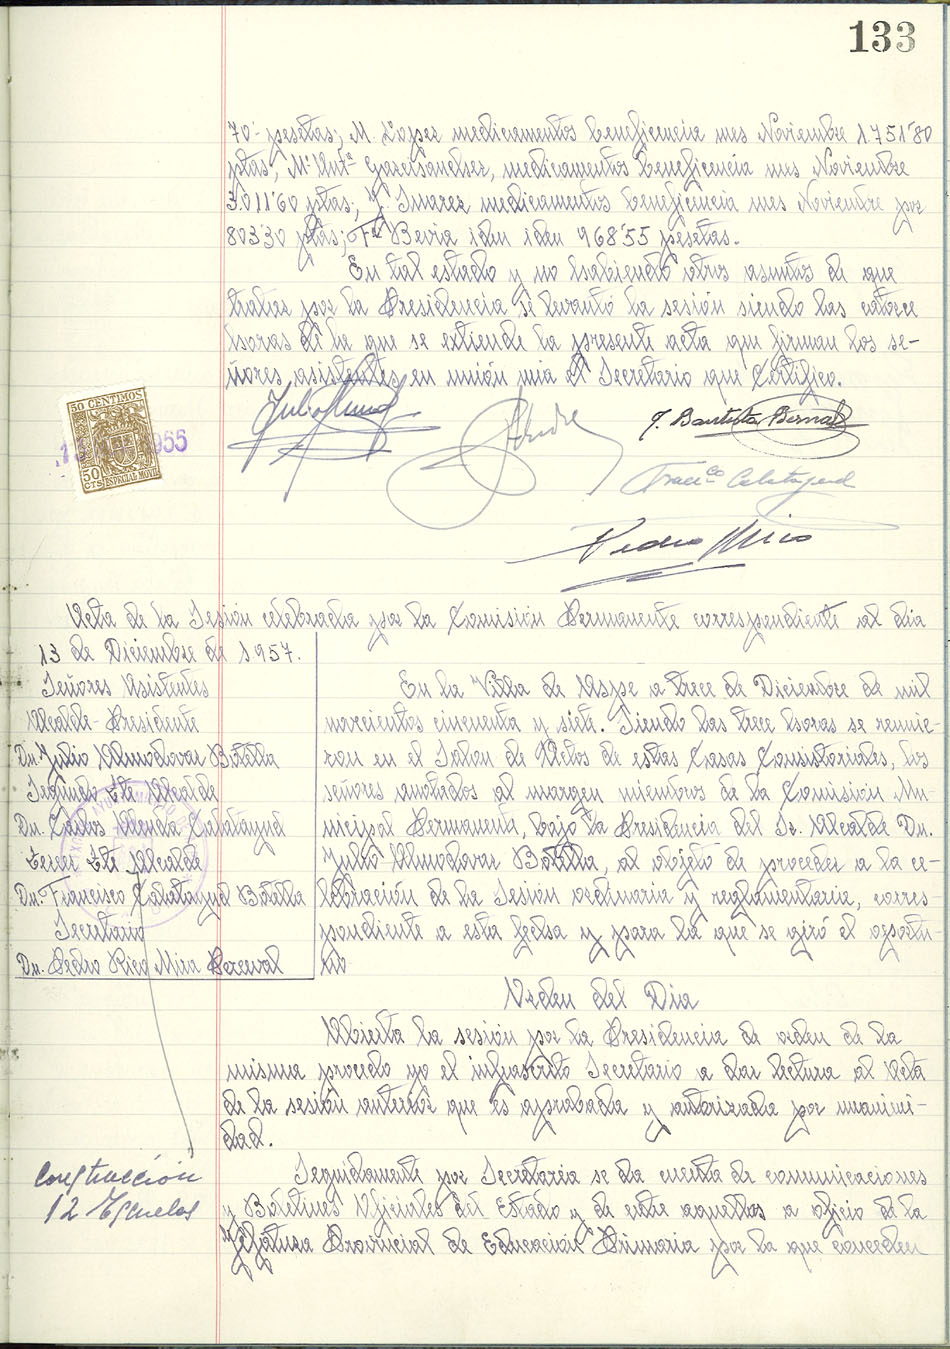 133
70'- pesetas; M. López medicamentos beneficencia mes Noviembre 1.751'80
ptas; Mª Antª Garcisanchez, medicamentos beneficencia mes Noviembre
3.011'60 ptas; J. Imarez medicamentos beneficencia mes Noviembre por
803'30 ptas; Fco Bevia idem iden 968'55 pesetas.
En tal estado y no habiendo otros asuntos de que
tratar por la Presidencia se levantó la sesión siendo las catorce
horas de la que se extiende la presente acta que firman los se-
ñores asistentes, en unión mia el Secretario que Certifico.
50 CENTIMOS
50
CTS ESPECIAL MOVIL
J. Bautista Bernal
Franco Calatayud
Pedro Mira
Acta de la Sesión celebrada por la Comisión Permanente correspondiente al día
13 de Diciembre de 1.957.
Señores Asistentes
Alcalde-Presidente
Dn. Julio Almodovar Botella
Segundo Tte Alcalde
Dn. Carlos Alenda Calatayud
Tercer Tte Alcalde
Dn. Francisco Calatayud Botella
Secretario
Dn. Pedro Rico Mira Perceval
En la Villa de Aspe a trece de Diciembre de mil
novecientos cincuenta y siete. Siendo las trece horas se reunie-
ron en el Salon de Actos de estas Casas Consistoriales, los
señores anotados al margen miembros de la Comisión Mu-
nicipal Permanente, bajo la Presidencia del Sr. Alcalde Dn.
Julio Almodovar Botella, al objeto de proceder a la ce-
lebración de la Sesión ordinaria y reglamentaria, corres-
pondiente a esta fecha y para la que se giró el oportu-
no
Orden del Dia
Abierta la sesión por la Presidencia de orden de la
misma procedo yo el infrascrito Secretario a dar lectura al Acta
de la sesión anterior que es aprobada y autorizada por unanimi-
dad.
Construcción
12 Escuelas
Seguidamente por Secretaria se da cuenta de comunicaciones
y Boletines Oficiales del Estado y de entre aquellas a oficio de la
Jefatura Provincial de Educación Primaria por la que conceden